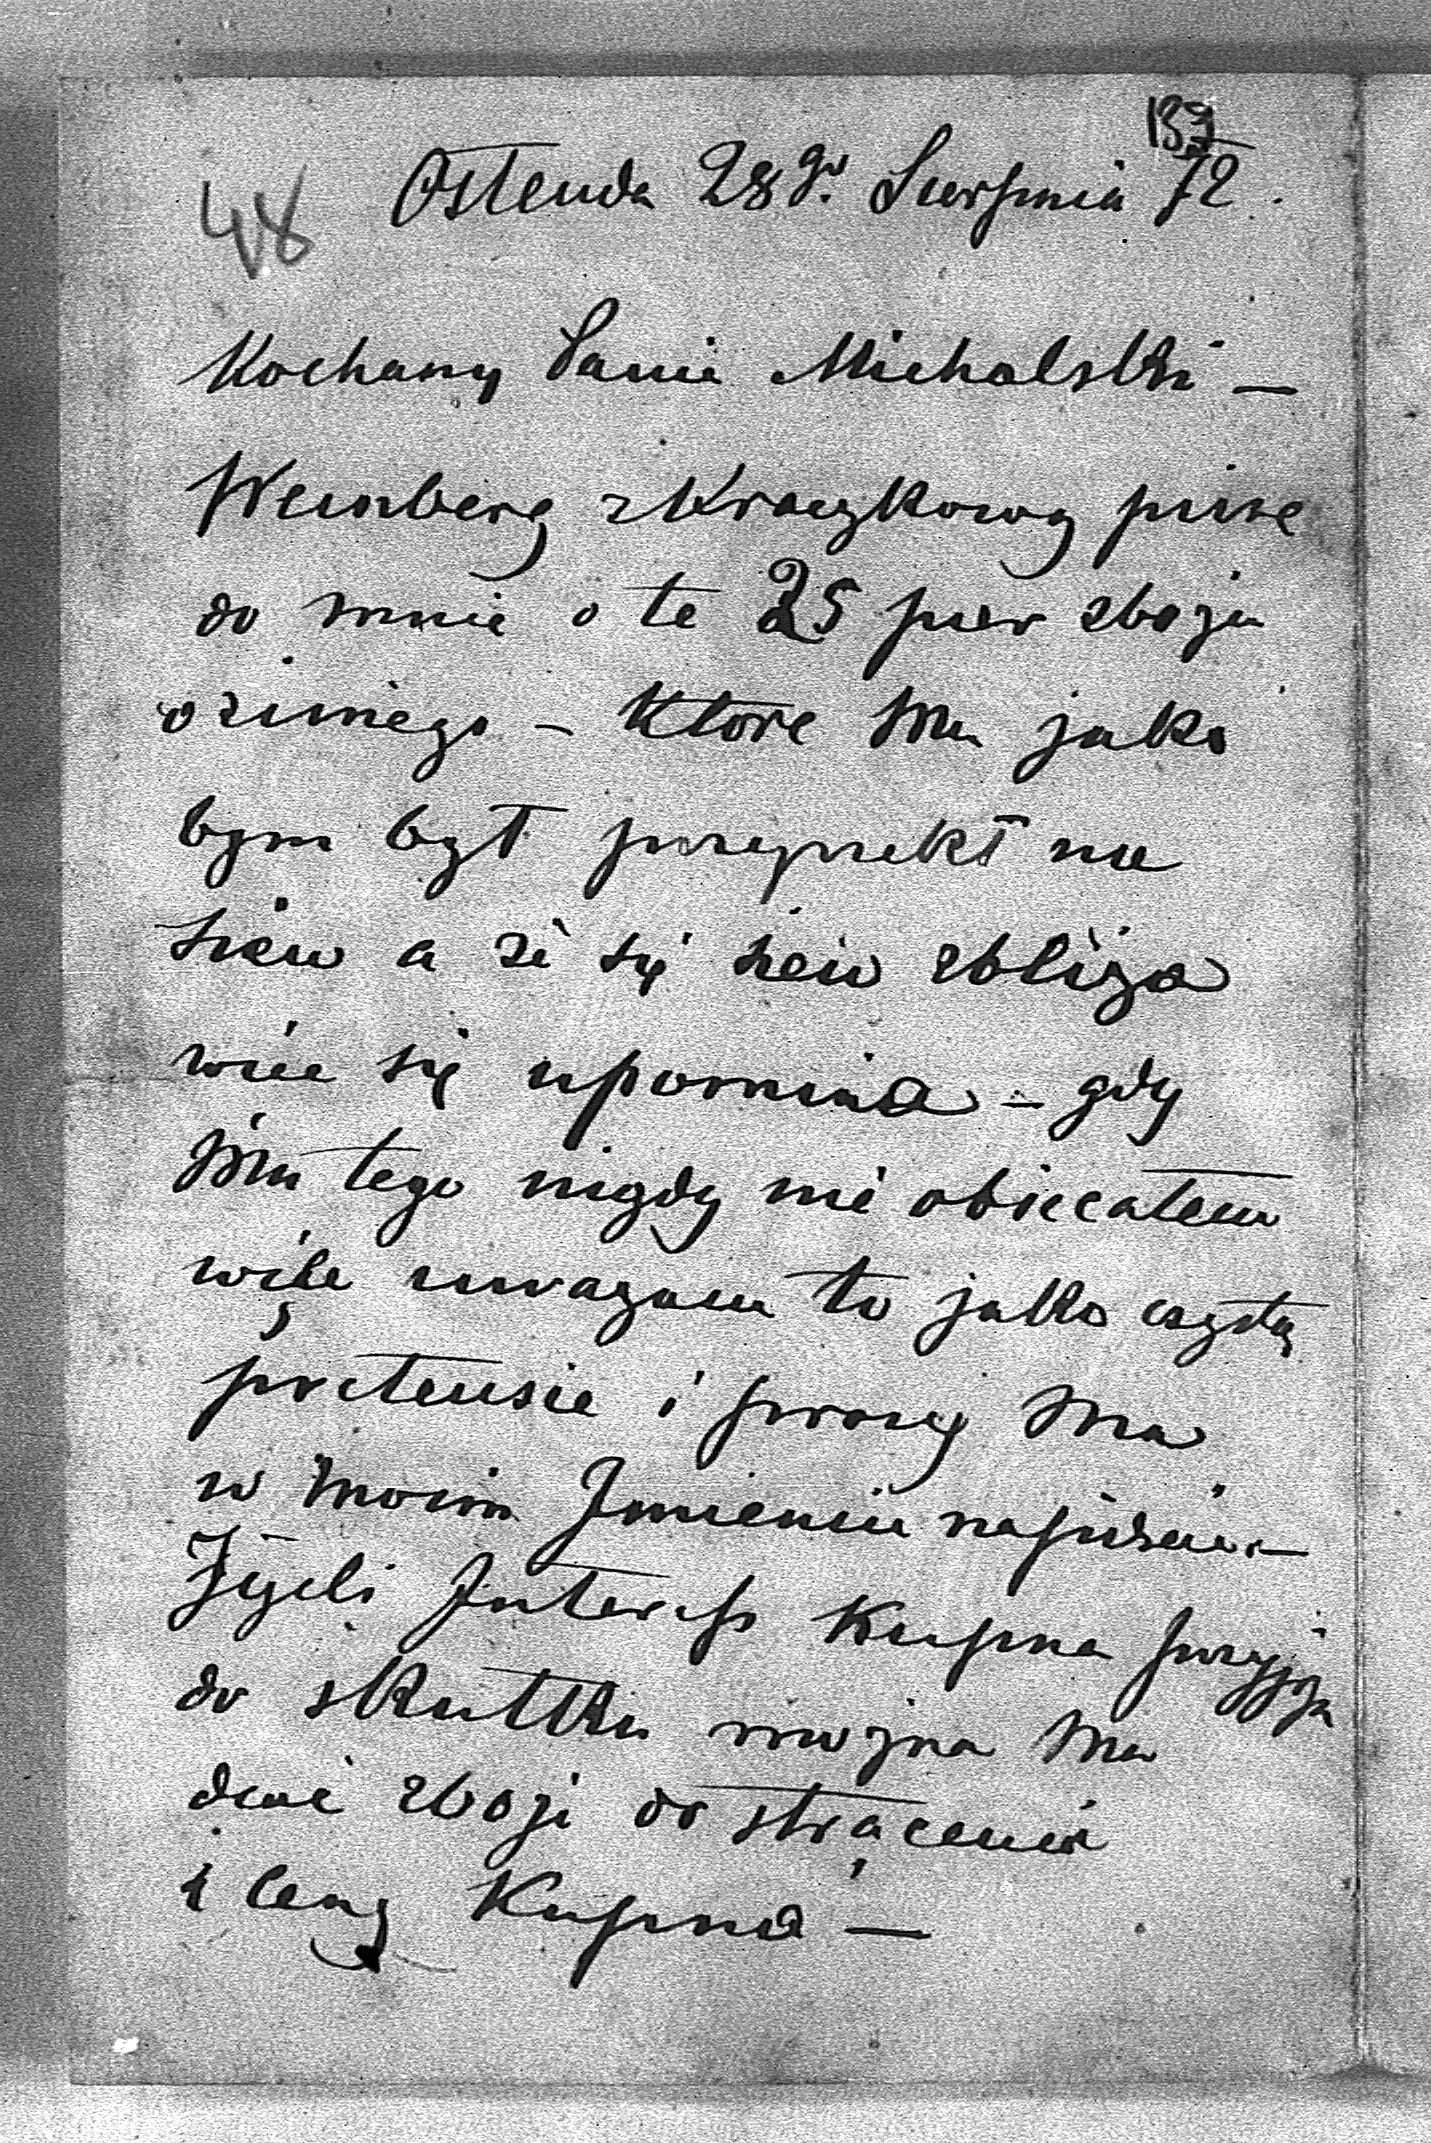 48 Ostenda 28go Sierpnia 72.
Kochany Panie Michalski —
Weinberg z Kraczkowy pisze
do mnie o te 25 par zboża
ozimego – które Mu jako
bym był przyrzekł na
siew a że się siew zbliża
więc się upomina – gdy
Mu tego nigdy nie obiecałem
więc uważam to jako czystą
pretensie i proszę Mu
w moim Jmieniu napisać —
Jeżeli Jnteress Kupna przyjdzie
do skutku można Mu
dać zboże do strącenia
z ceny Kupna —